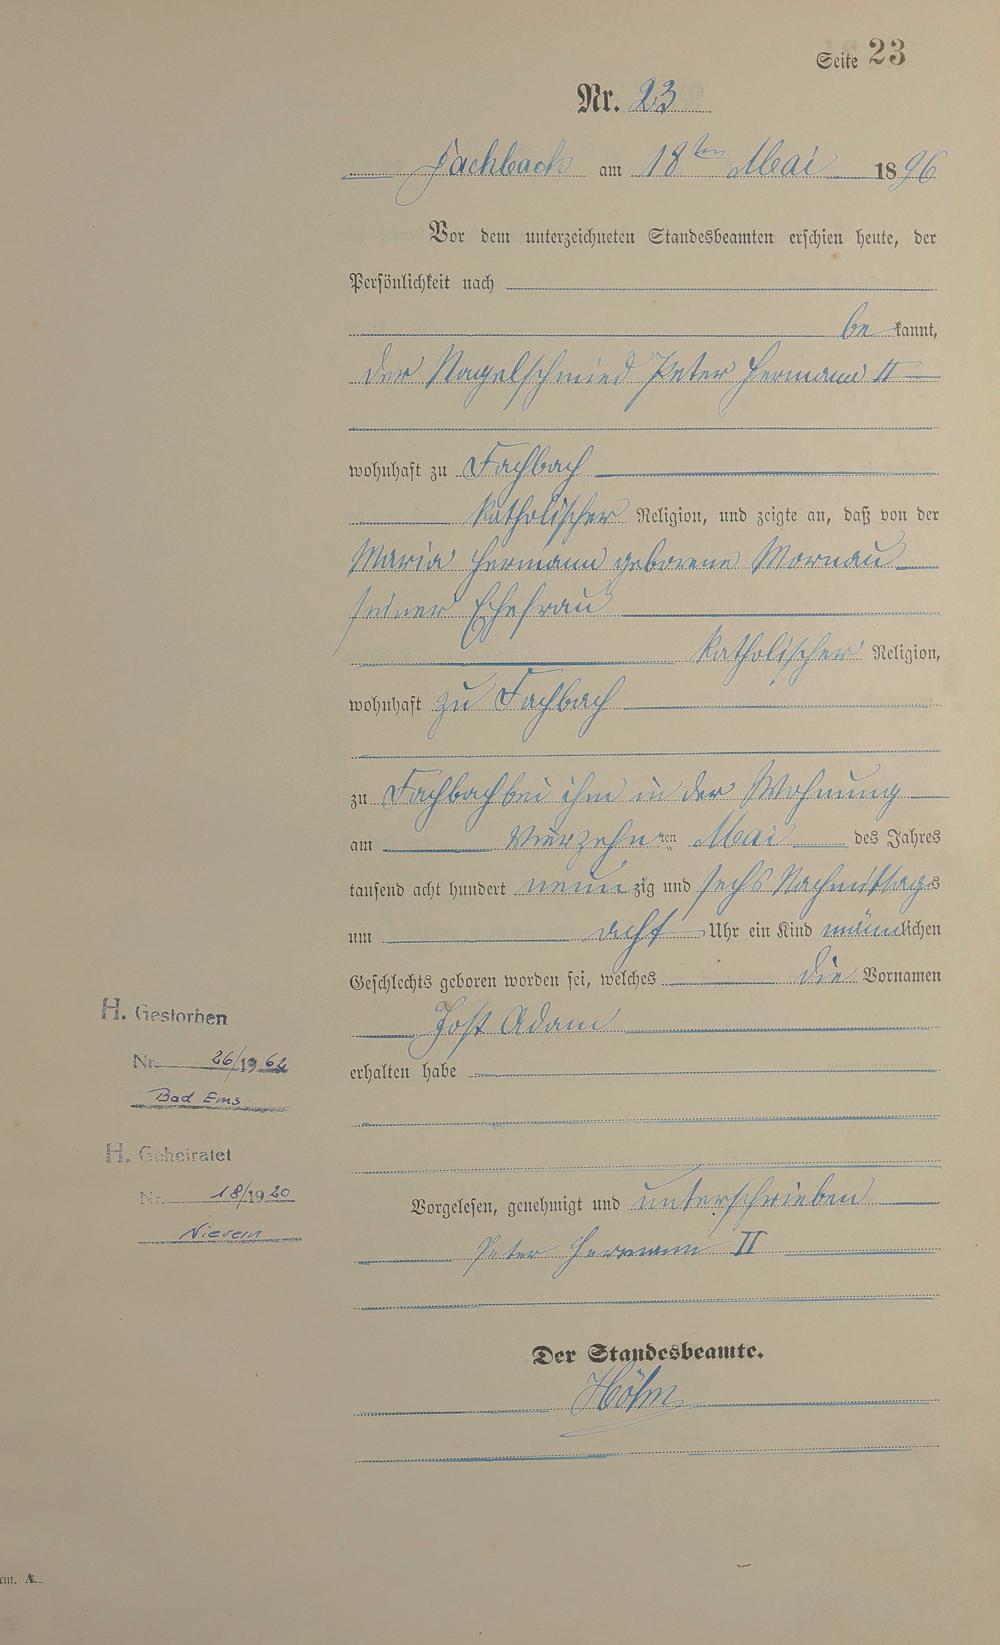 Seite 23
Nr. 23
Fachbach am 18ten Mai 1896
Vor dem unterzeichneten Standesbeamten erschien heute, der
Persönlichkeit nach
be kannt,
der Nagelschmied Peter Hermann II
wohnhaft zu Fachbach
katholischer Religion, und zeigte an, daß von der
Maria Hermann geborene Mornau
seiner Ehefrau
katholischer Religion,
wohnhaft zu Fachbach
zu Fachbach bei ihm in der Wohnung
am vierzehnten Mai des Jahres
tausend acht hundert neunzig und sechs Nachmittags
um acht Uhr ein Kind männlichen
Geschlechts geboren worden sei, welches die Vornamen
Jost Adam
erhalten habe
H. Gestorben
Nr. 26/1962
Bad Ems
H. Geheiratet
Nr. 18/1920
Nievern
Vorgelesen, genehmigt und unterschrieben
Peter Hermann II
Der Standesbeamte.
A.